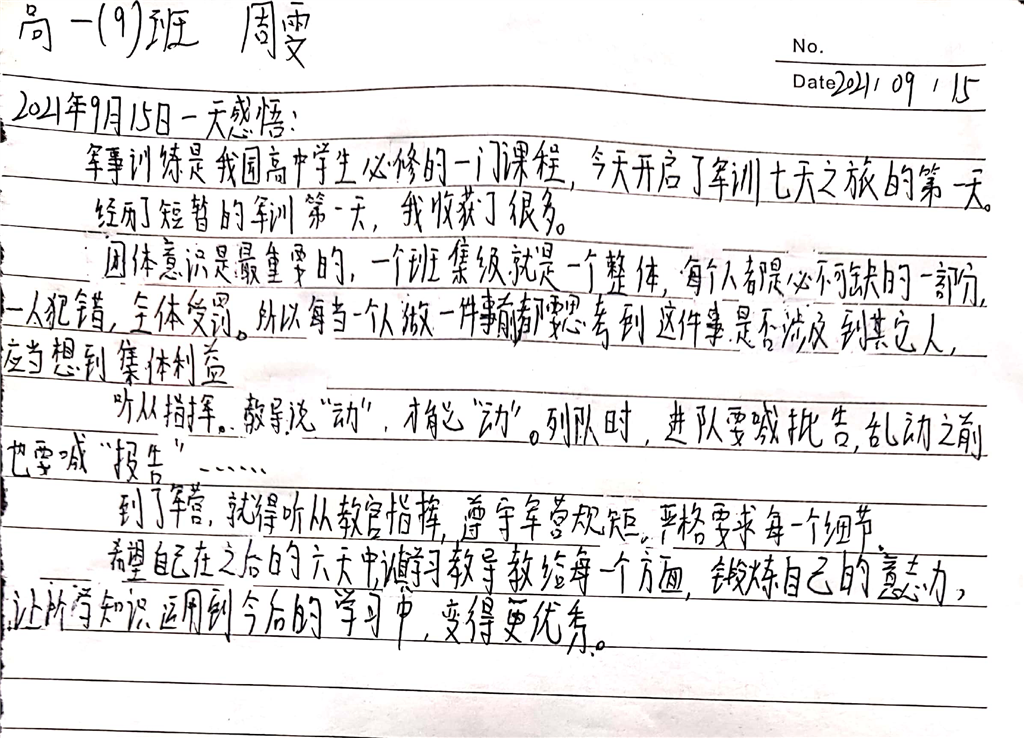 高一(9)班 周雯
No.
Date 2021 / 09 / 15
2021年9月15日一天感悟：
军事训练是我国高中学生必修的一门课程，今天开启了军训七天之旅的第一天。
经历了短暂的军训第一天，我收获了很多。
团体意识是最重要的，一个班集级就是一个整体，每个人都是必不可缺的一部份，
一人犯错，全体受罚。所以每当一个人做一件事前都要思考到这件事是否涉及到其它人，
应当想到集体利益
听从指挥。教导说“动”，才能“动”。列队时，进队要喊报告，乱动之前
也要喊“报告”……
到了军营，就得听从教官指挥，遵守军营规矩。严格要求每一个细节。
希望自己在之后的六天中认真学习教导教给每一个方面，锻炼自己的意志力，
让所学知识运用到今后的学习中，变得更优秀。